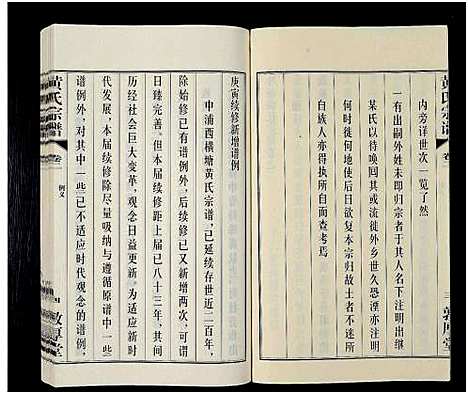 黄氏宗谱
卷一
内旁详世次一览了然
一有出嗣外姓未即归宗者于其人名下注明出继
某氏以待唤回其或流徙外乡世久恐湮亦注明
何时徙何地使后日欲复本宗归故土者不迷所
自而查考焉
族人亦得所执
三
敦厚堂
庚寅续修新增谱例
申浦西横塘黄氏宗谱，已延续存世近二百年，
除始修已有谱例外，后续修已又新增两次，可谓
日臻完善。但本届续修距上届已八十三年，其间
历经社会巨大变革，观念日益更新。为适应新时
代发展，本届续修除尽量吸纳与遵循原谱中一些
谱例外，对其中一些已不适应时代观念的谱例，
黄氏宗谱
卷一
例义
四
敦厚堂